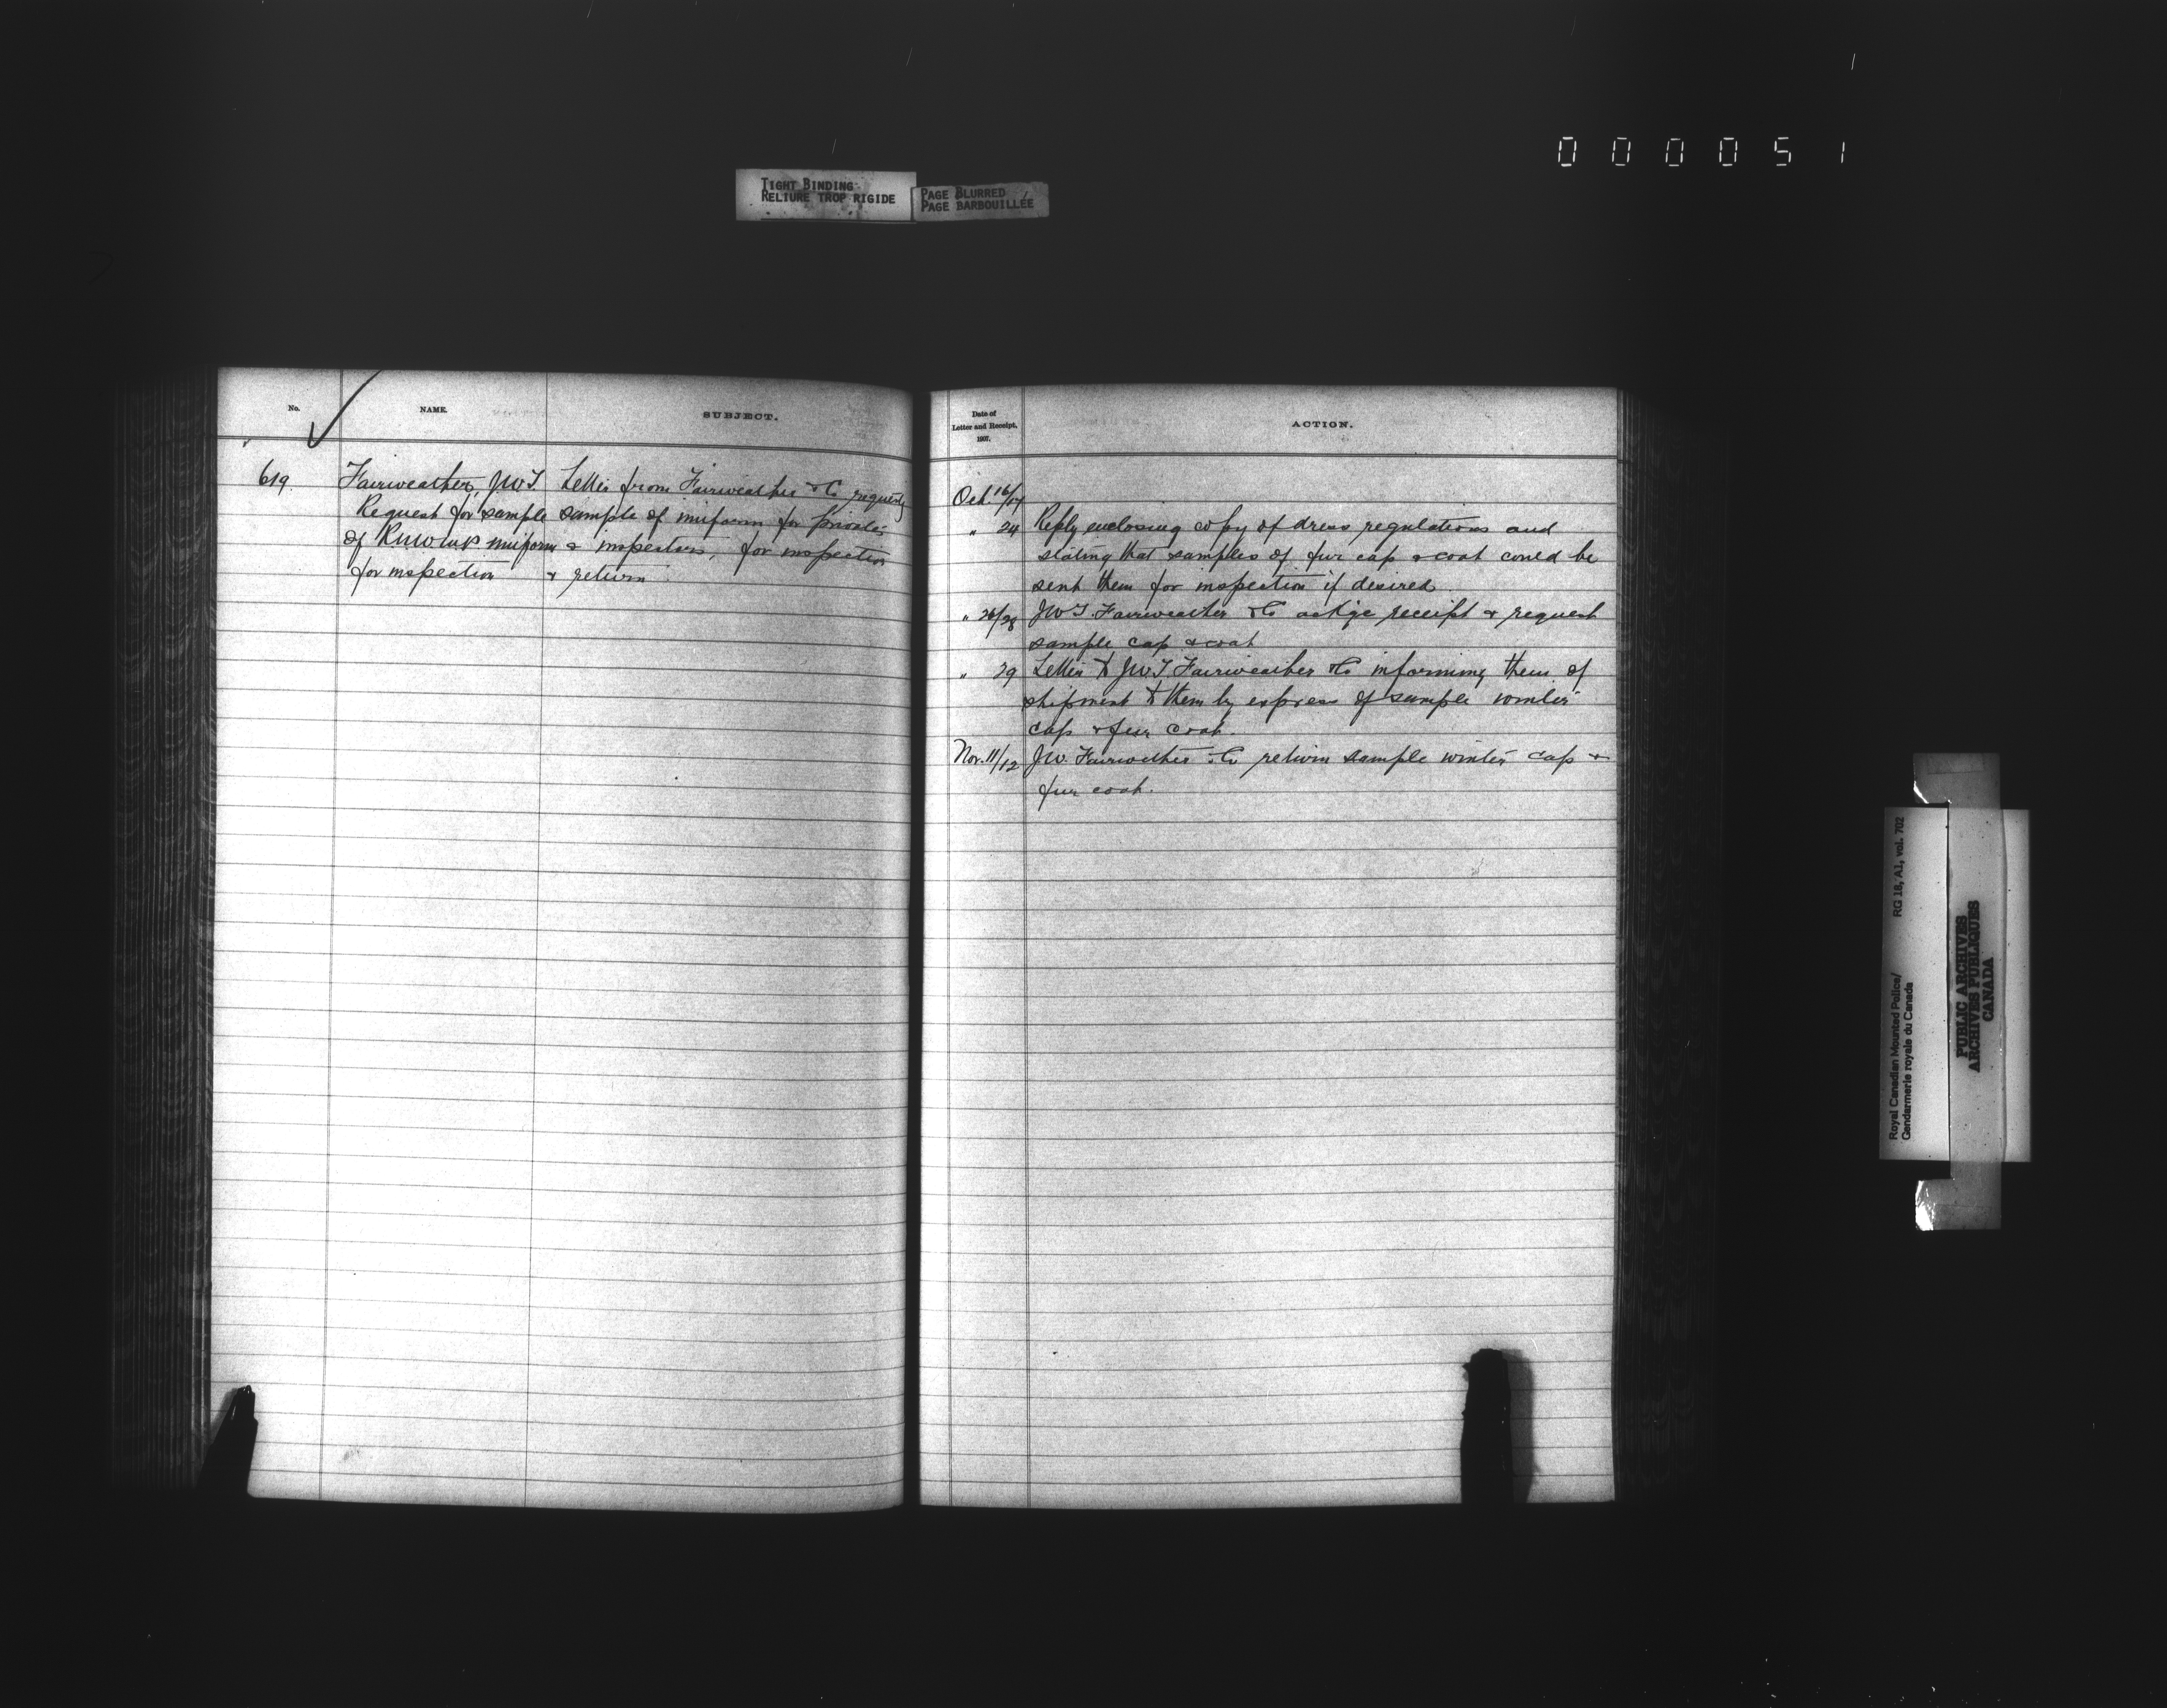 000051
TIGHT BINDING
RELIURE TROP RIGIDE
PAGE BLURRED
PAGE BARBOUILLÉE
No.
NAME.
SUBJECT.
619.
Fairweather, J.W.T.
Request for sample
of RNWMP uniform
for inspection
Letter from Fairweather & Co requesting
sample of uniform for privates
& inspectors, for inspection
& return
Date of
Letter and Receipt,
1907.
ACTION.
Oct. 16/17
" 24 Reply enclosing copy of dress regulations and
stating that samples of fur cap & coat could be
sent them for inspection if desired
" 26/28 J.W.T. Fairweather & Co ackge receipt & request
sample cap & coat
" 29 Letter to J.W.T Fairweather & Co informing them of
shipment to them by express of sample winter
cap & fur coat.
Nov. 11/12 J.W. Fairweather & Co return sample winter cap &
fur coat.
Royal Canadian Mounted Police/
Gendarmerie royale du Canada
RG 18, A1, vol. 702
PUBLIC ARCHIVES
ARCHIVES PUBLIQUES
CANADA